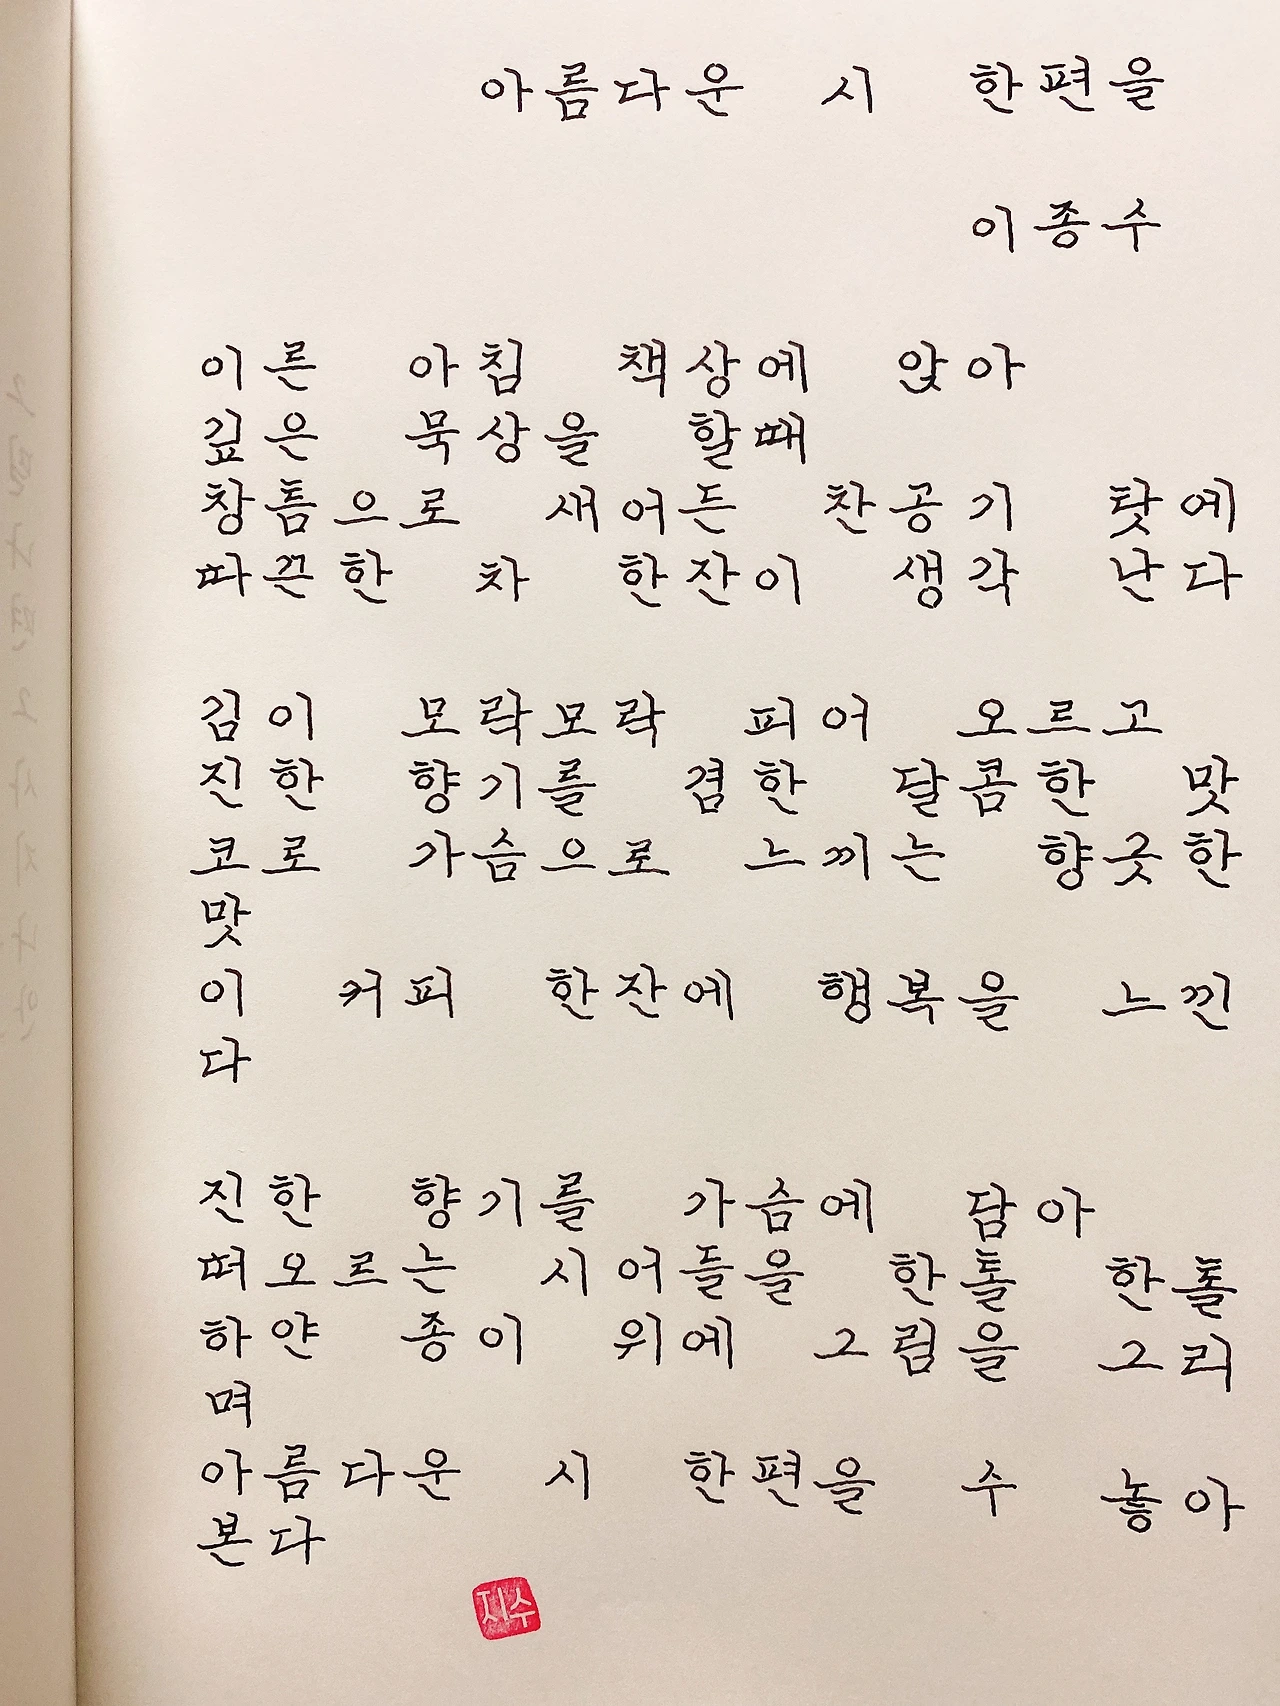 아름다운 시 한편을
이종수
이른 아침 책상에 앉아
깊은 묵상을 할때
창틈으로 새어든 찬공기 탓에
따끈한 차 한잔이 생각 난다
김이 모락모락 피어 오르고
진한 향기를 겸한 달콤한 맛
코로 가슴으로 느끼는 향긋한
맛
이 커피 한잔에 행복을 느낀
다
진한 향기를 가슴에 담아
떠오르는 시어들을 한톨 한톨
하얀 종이 위에 그림을 그리
며
아름다운 시 한편을 수 놓아
본다
지수